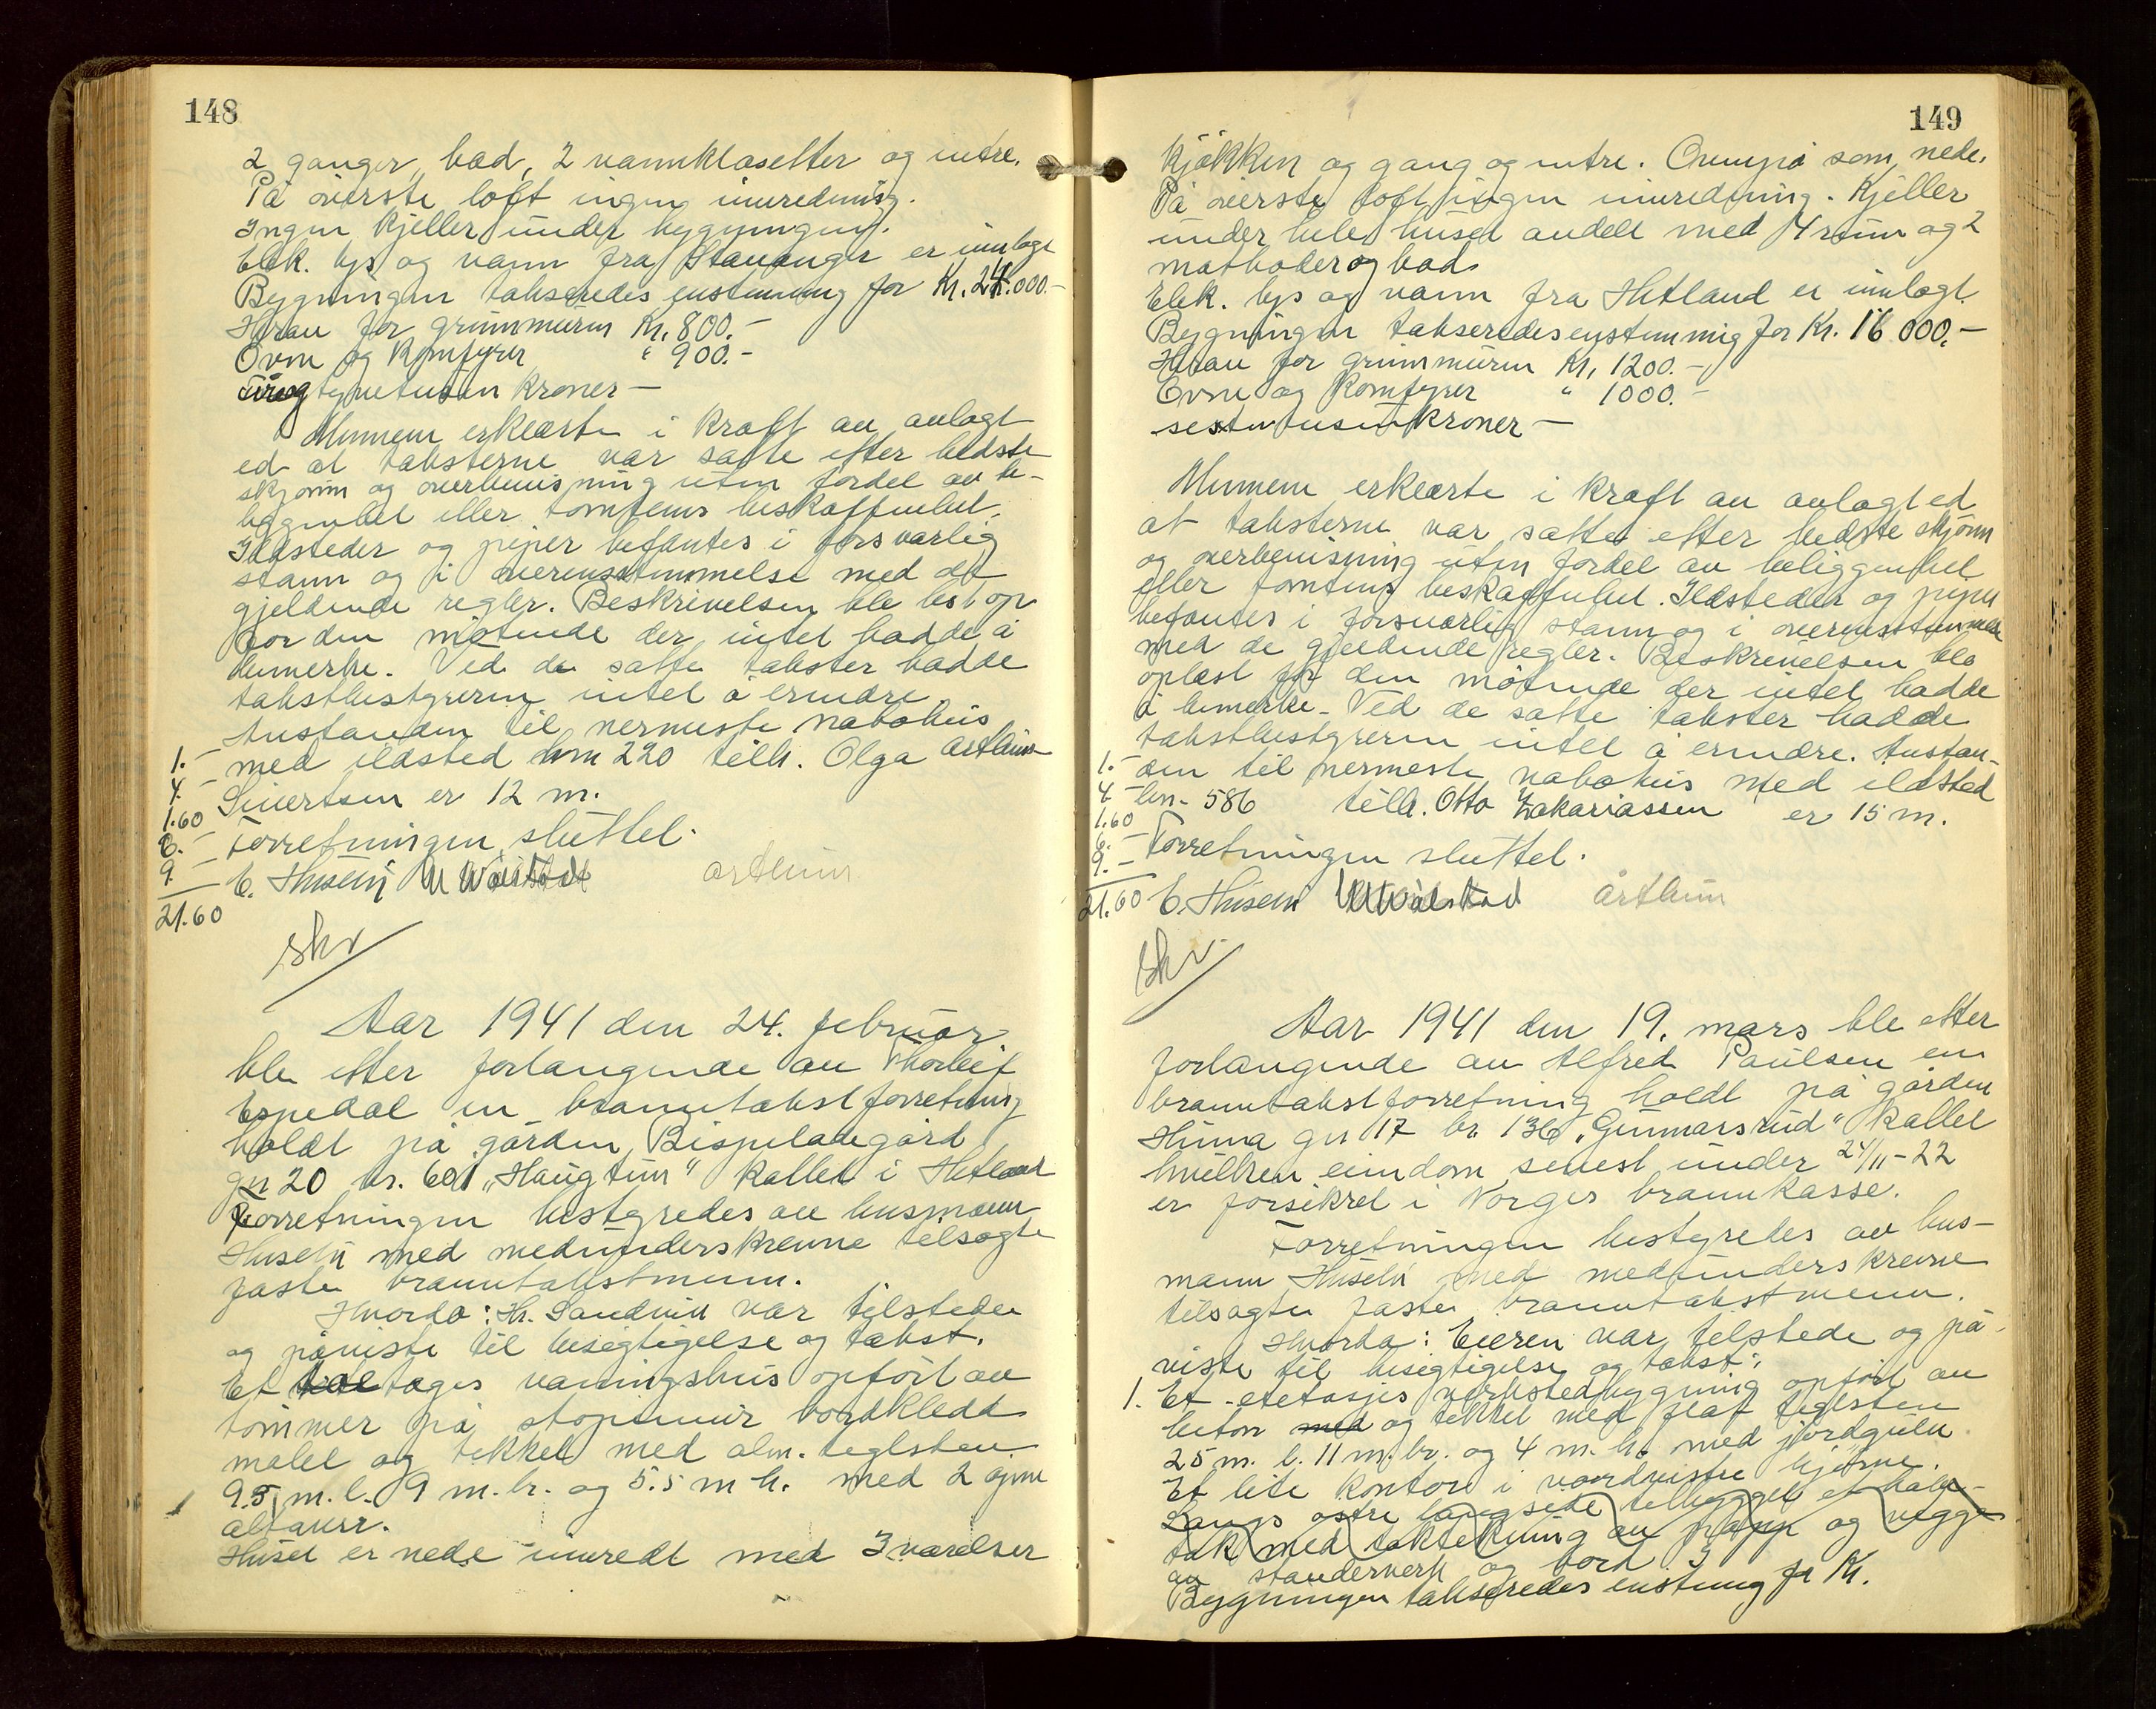 148
2 ganger, bad, 2 vannklosetter og entre.
På øverste loft ingen innredning.
Ingen kjeller under bygningen.
Elek. lys og vann fra Stavanger er innlagt
Bygningen takseredes enstemmig for Kr. 24.000.-
Herav for grunnmuren Kr. 800.-
Ovne og Komfyrer " 900.-
tyvetusen kroner —
Mennene erklærte i kraft av avlagt
ed at taksterne var satte efter bedste
skjønn og overbevisning uten fordel av be-
liggenhet eller tomtens beskaffenhet.
Ildsteder og piper befantes i forsvarlig
stann og i overensstemmelse med de
gjeldende regler. Beskrivelsen ble lest op
for den møtende der intet hadde å
bemerke. Ved de satte takster hadde
takstbestyreren intet å erindre.
Avstanden til nermeste nabohus
1.- med ildsted bnr 220 tilh. Olga Årthun
4.- Sivertsen er 12 m.
1.60
6.- Forretningen sluttet.
9.- E. Husebø M Wålstad årthun
21.60
skr
Aar 1941 den 24. februar
ble efter forlangende av Thorleif
Espedal en branntakstforretning
holdt på gården Bispeladegård
gn 20 br. 601 „Haugtun" kallet i Hetland
Forretningen bestyredes av lensmann
Husebø med medunderskrevne tilsagte
faste branntakstmenn.
Hvorda: Hr. Sandvik var tilstede
og påviste til besigtigelse og takst.
Et toetages våningshus opført av
tømmer på støpemur bordkledd
malet og tekket med alm. teglsten
9.5 m.l. 9 m.br. og 5.5 m h. med 2 åpne
altaner.
Huset er nede innredt med 3 værelser
149
kjøkken og gang og entre. Ovenpå som nede.
På øverste loft ingen innredning. Kjeller
under hele huset avdelt med 4 rum og 2
matboder og bad.
Elek. lys og vann fra Hetland er innlagt
Bygningen takseredes enstemmig for Kr. 16 000.-
Herav for grunnmuren Kr. 1200.-
Ovne og Komfyrer " 1000.-
sestentusen kroner —
Mennene erklærte i kraft av avlagt ed
at taksterne var satte efter bedste skjønn
og overbevisning uten fordel av beliggenhet
eller tomtens beskaffenhet. Ildsteder og piper
befantes i forsvarlig stann og i overensstemmelse
med de gjeldende regler. Beskrivelsen ble
oplæst for den møtende der intet hadde
å bemerke. Ved de satte takster hadde
takstbestyreren intet å erindre. Avstan-
1.- den til nermeste nabohus med ildsted
4.- bn. 586 tilh. Otto Zakariassen er 15 m.
1.60
6.- Forretningen sluttet.
9.-
21.60 E. Husebø M Wålstad årthun
skr
Aar 1941 den 19. mars ble efter
forlangende av Alfred Paulsen en
branntakstforretning holdt på gården
Hinna gn 17 br. 136 „Gunnarsrud" kallet
hvilken eiendom senest under 24/11-22
er forsikret i Norges brannkasse.
Forretningen bestyredes av lens-
mann Husebø med medunderskrevne
tilsagte faste branntakstmenn.
Hvorda: Eieren var tilstede og på-
viste til besigtigelse og takst:
1. Et etetasjes verkstedbygning opført av
beton med og tekket med flat teglsten
25 m. l. 11 m. br. og 4 m. h. med jordgulv.
Et lite kontor i nordvestre hjørne.
Langs østre langside tilbygget et halv-
tak med taktekning av papp og vegge
av standerverk og bord
Bygningen takseredes enstemmig for Kr.